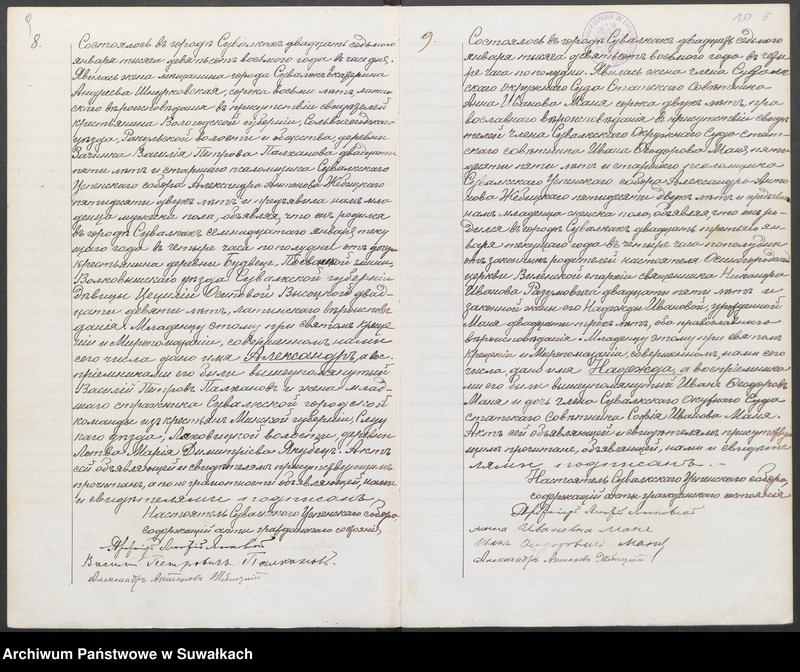 8.
Состоялось въ городѣ Сувалкахъ двадцать седьмого
января тысяча девятьсотъ восьмого года въ часъ дня.
Явилась жена мѣщанина города Сувалокъ Екатерина
Андреева Шмурковская, сорока восьми лѣтъ латин-
скаго вѣроисповѣданія въ присутствіи свидѣтелей
крестьянина Вологодской губерніи, Сольвычегодскаго
уѣзда, Ракульской волости и общества, деревни
Василія Петрова Палканова двадцати
пяти лѣтъ и старшаго псаломщика Сувалкскаго
Успенскаго собора Александра Антонова Жебицкаго
пятидесяти двухъ лѣтъ и предъявила намъ мла-
денца мужска пола, объявляя, что онъ родился
въ городѣ Сувалкахъ семнадцатаго января теку
щаго года въ четыре часа пополудни отъ
крестьянина деревни Будвец, гмины,
Волковышскаго уѣзда Сувалкской губерніи
дѣвицы Цециліи Осиповой Высоцкой двад-
цати девяти лѣтъ, латинскаго вѣроисповѣ
данія. Младенцу этому при святомъ креще
ніи и Миропомазаніи, совершенномъ нами
сего числа дано имя Александръ, а вос-
пріемниками его были вышеупомянутый
Василій Петровъ Палкановъ и жена млад-
шаго стражника Сувалкской городской
команды изъ крестьянъ Минской губерніи, Слуц
каго уѣзда, Ляховичской волости, деревни
Лотва Марія Димитріева Якубецъ. Актъ
сей объявляющей и свидѣтелямъ присутствующимъ
прочитанъ, а по не грамотности объявляющей, нами
и свидѣтелями подписанъ.
Настоятель Сувалкскаго Успенскаго собора,
содержащій акты гражданскаго состоянія
Василій Петровичъ Палкановъ.
Александръ Антоновъ Жебицкій
9.
Состоялось въ городѣ Сувалкахъ двадцать седьмого
января тысяча девятьсотъ восьмого года въ четы
ре часа пополудни. Явилась жена члена Сувалк
скаго окружнаго Суда Статскаго Совѣтника
Анна Иванова Маня сорока двухъ лѣтъ, пра
вославнаго вѣроисповѣданія въ присутствіи свидѣ
телей члена Сувалкскаго Окружнаго Суда Стат-
скаго совѣтника Ивана Ѳеодорова Маня, пяти
десяти пяти лѣтъ и старшаго псаломщика
Сувалкскаго Успенскаго собора Александра Анто
нова Жебицкаго пятидесяти двухъ лѣтъ и предъявила
намъ младенца женска пола, объявляя, что она ро-
дилась въ городѣ Сувалкахъ двадцать третьяго ян
варя текущаго года въ четыре часа пополудни
отъ законныхъ родителей настоятеля
церкви Виленской епархіи священника Никандра
Иванова Разумовича двадцати пяти лѣтъ и
законной жены его Надежды Ивановой, урожденной
Маня двадцати трехъ лѣтъ, оба православнаго
вѣроисповѣданія. Младенцу этому при святомъ
крещеніи и Миропомазаніи, совершенномъ, нами сего
числа, дано имя Надежда, а воспріемника
ми его были вышеупомянутый Иванъ Ѳеодоровъ
Маня и дочь члена Сувалкскаго Окружнаго Суда
Статскаго Совѣтника Софія Иванова Маня.
Актъ сей объявляющей и свидѣтелямъ присутствую
щимъ прочитанъ, объявляющей, нами и свидѣте
лями подписанъ. -
Настоятель Сувалкскаго Успенскаго собора,
содержащій акты гражданскаго состоянія
Анна Ивановна Маня
Иванъ Ѳеодоровичъ Маня
Александръ Антоновъ Жебицкій
Archiwum Państwowe w Suwałkach